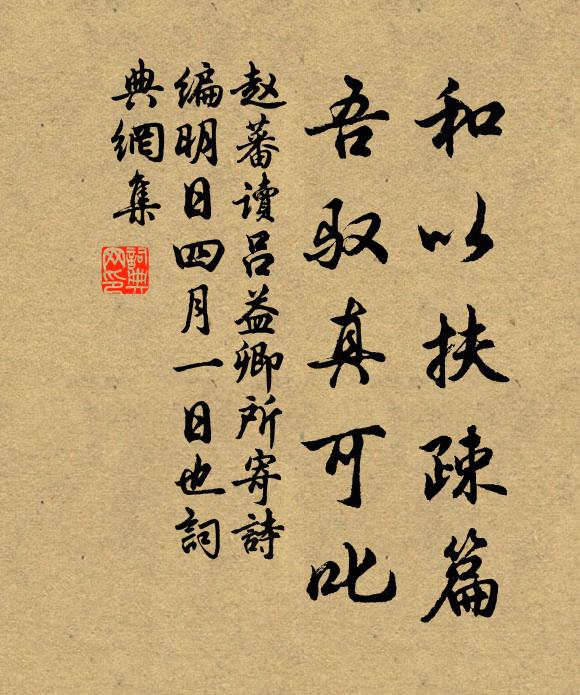 和以扶疎篇
吾驭真可叱
赵蕃讀吕益卿所寄詩
编明日四月一日也詞
典網集
詞典網印